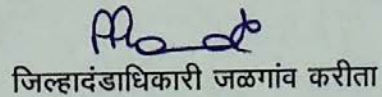 जिल्हादंडाधिकारी जळगांव करीता